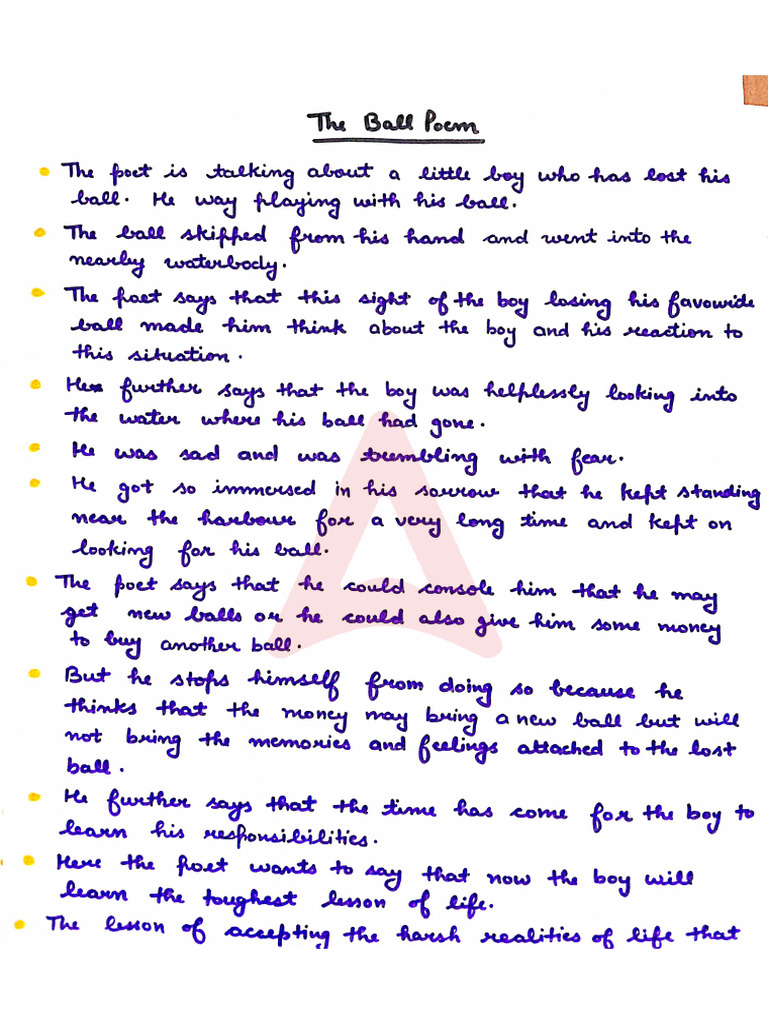 The Ball Poem
The poet is talking about a little boy who has lost his
ball. He way playing with his ball.
The ball skipped from his hand and went into the
nearby waterbody.
The poet says that this sight of the boy losing his favouvide
ball made him think about the boy and his reaction to
this situation.
He further says that the boy was helplessly looking into
the water where his ball had gone.
He was sad and was trembling with fear.
He got so immersed in his sorrow that he kept standing
near the harbour for a very long time and kept on
looking for his ball.
The poet says that he could console him that he may
get new balls or he could also give him some money
to buy another ball.
But he stops himself from doing so because he
thinks that the money may bring a new ball but will
not bring the memories and feelings attached to the lost
ball.
He further says that the time has come for the boy to
learn his responsibilities.
Here the poet wants to say that now the boy will
learn the toughest lesson of life.
The lesson of accepting the harsh realities of life that